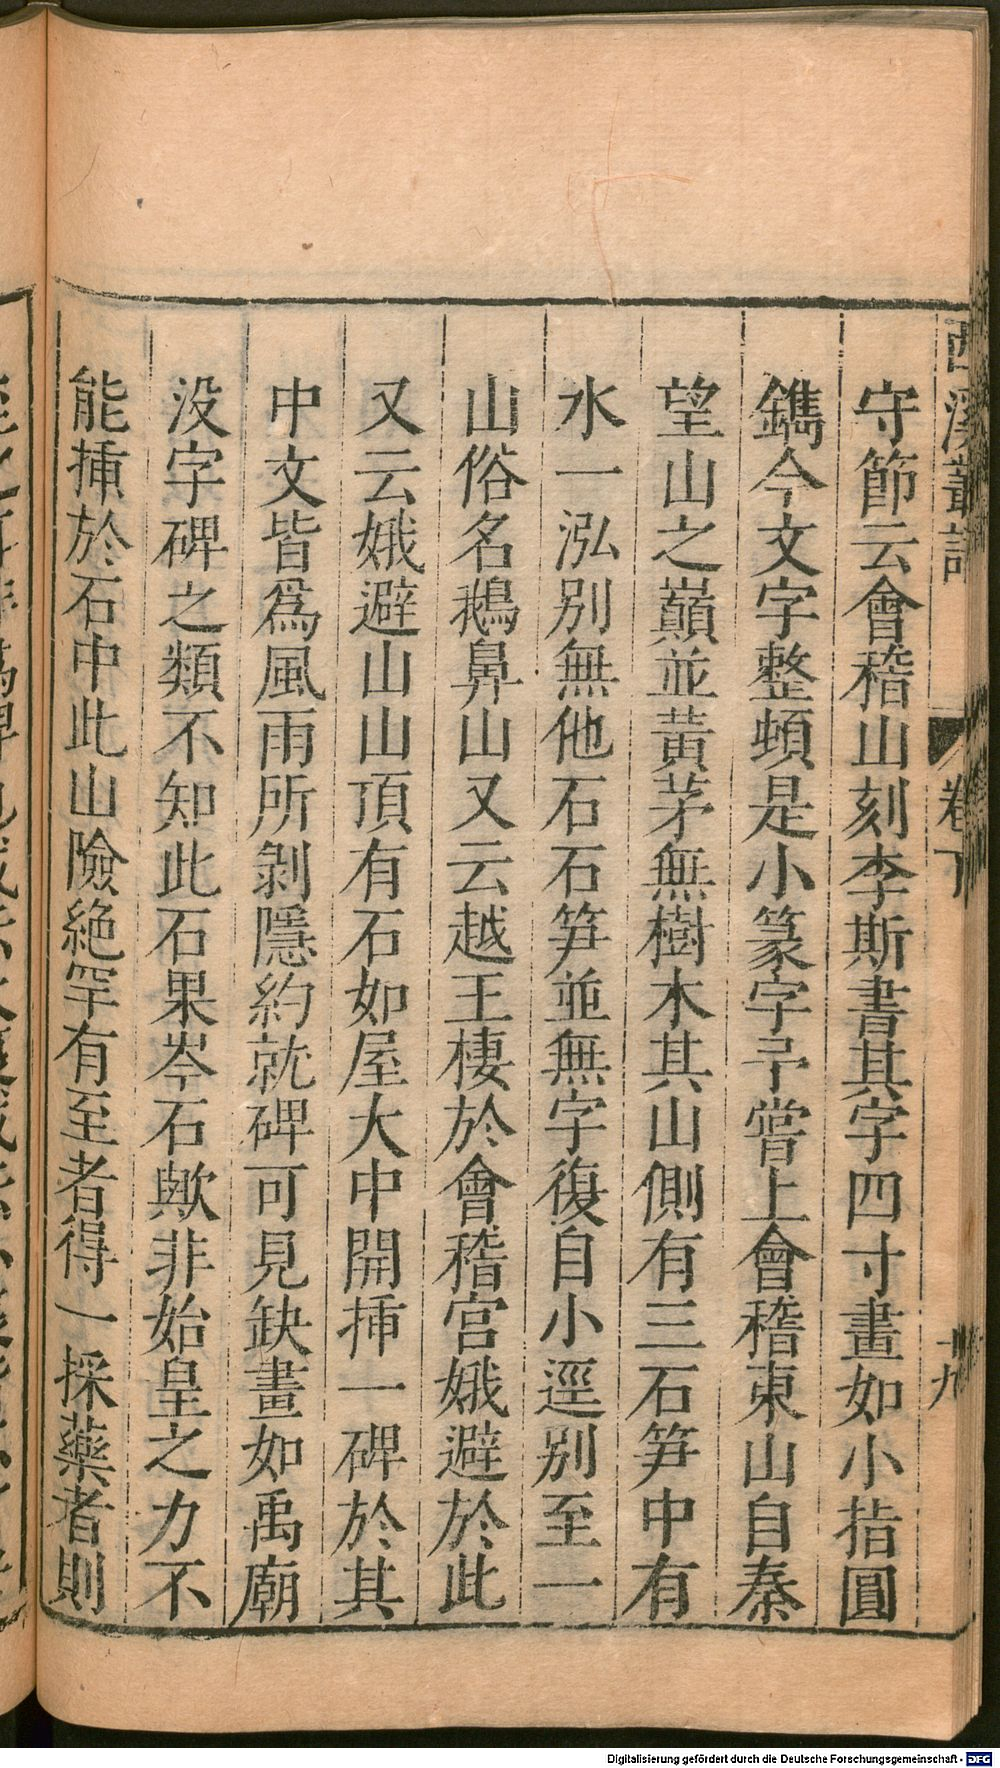 西溪叢語
卷下
十九
守節云會稽山刻李斯書其字四寸畫如小指圓
鐫今文字整頓是小篆字予嘗上會稽東山自秦
望山之巔並黃茅無樹木其山側有三石笋中有
水一泓別無他石石笋並無字復自小逕別至一
山俗名鵝鼻山又云越王棲於會稽宮娥避於此
又云娥避山山頂有石如屋大中開揷一碑於其
中文皆爲風雨所剝隱約就碑可見缺畫如禹廟
没字碑之類不知此石果岑石歟非始皇之力不
能揷於石中此山險絶罕有至者得一採藥者則
Digitalisierung gefördert durch die Deutsche Forschungsgemeinschaft - DFG